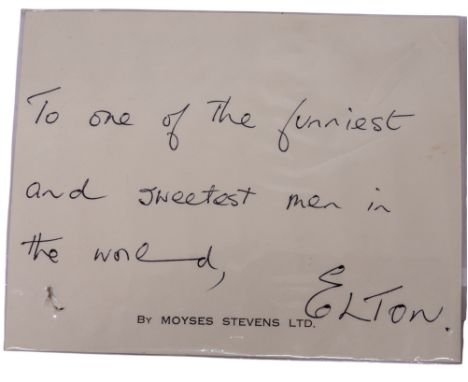 To one of the funniest
and sweetest men in
the world,
ELTON.
BY MOYSES STEVENS LTD.